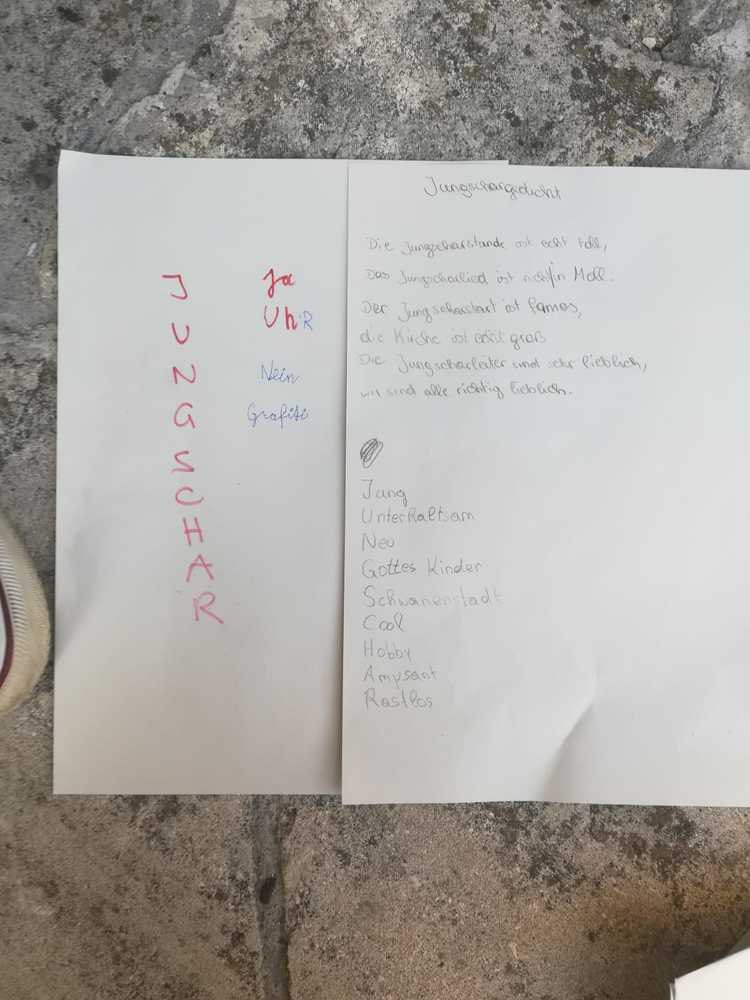 J
U
N
G
S
C
H
A
R
Ja
UhR
Nein
Grafiti
Jungschargedicht
Die Jungscharstunde ist echt toll,
Das Jungscharlied ist nicht in Moll.
Der Jungscharstart ist famos,
die Kirche ist echt groß
Die Jungscharleiter sind sehr lieblich,
wir sind alle richtig lieblich.
Jung
Unterhaltsam
Neu
Gottes Kinder
Schwanenstadt
Cool
Hobby
Amysant
Rastlos